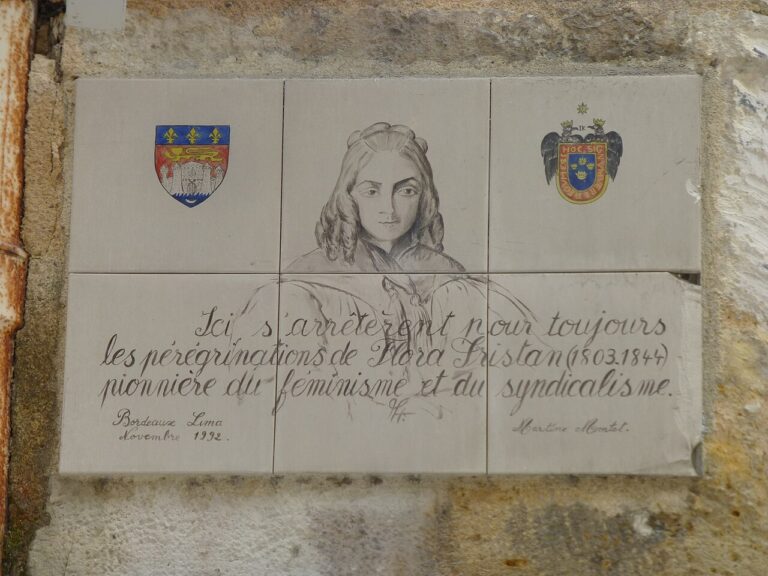 HOC SIG
IK
Ici s'arrêtèrent pour toujours
les pérégrinations de Flora Tristan (1803.1844)
pionnière du féminisme et du syndicalisme.
Bordeaux Lima
Novembre 1992.
Martine Mostel.